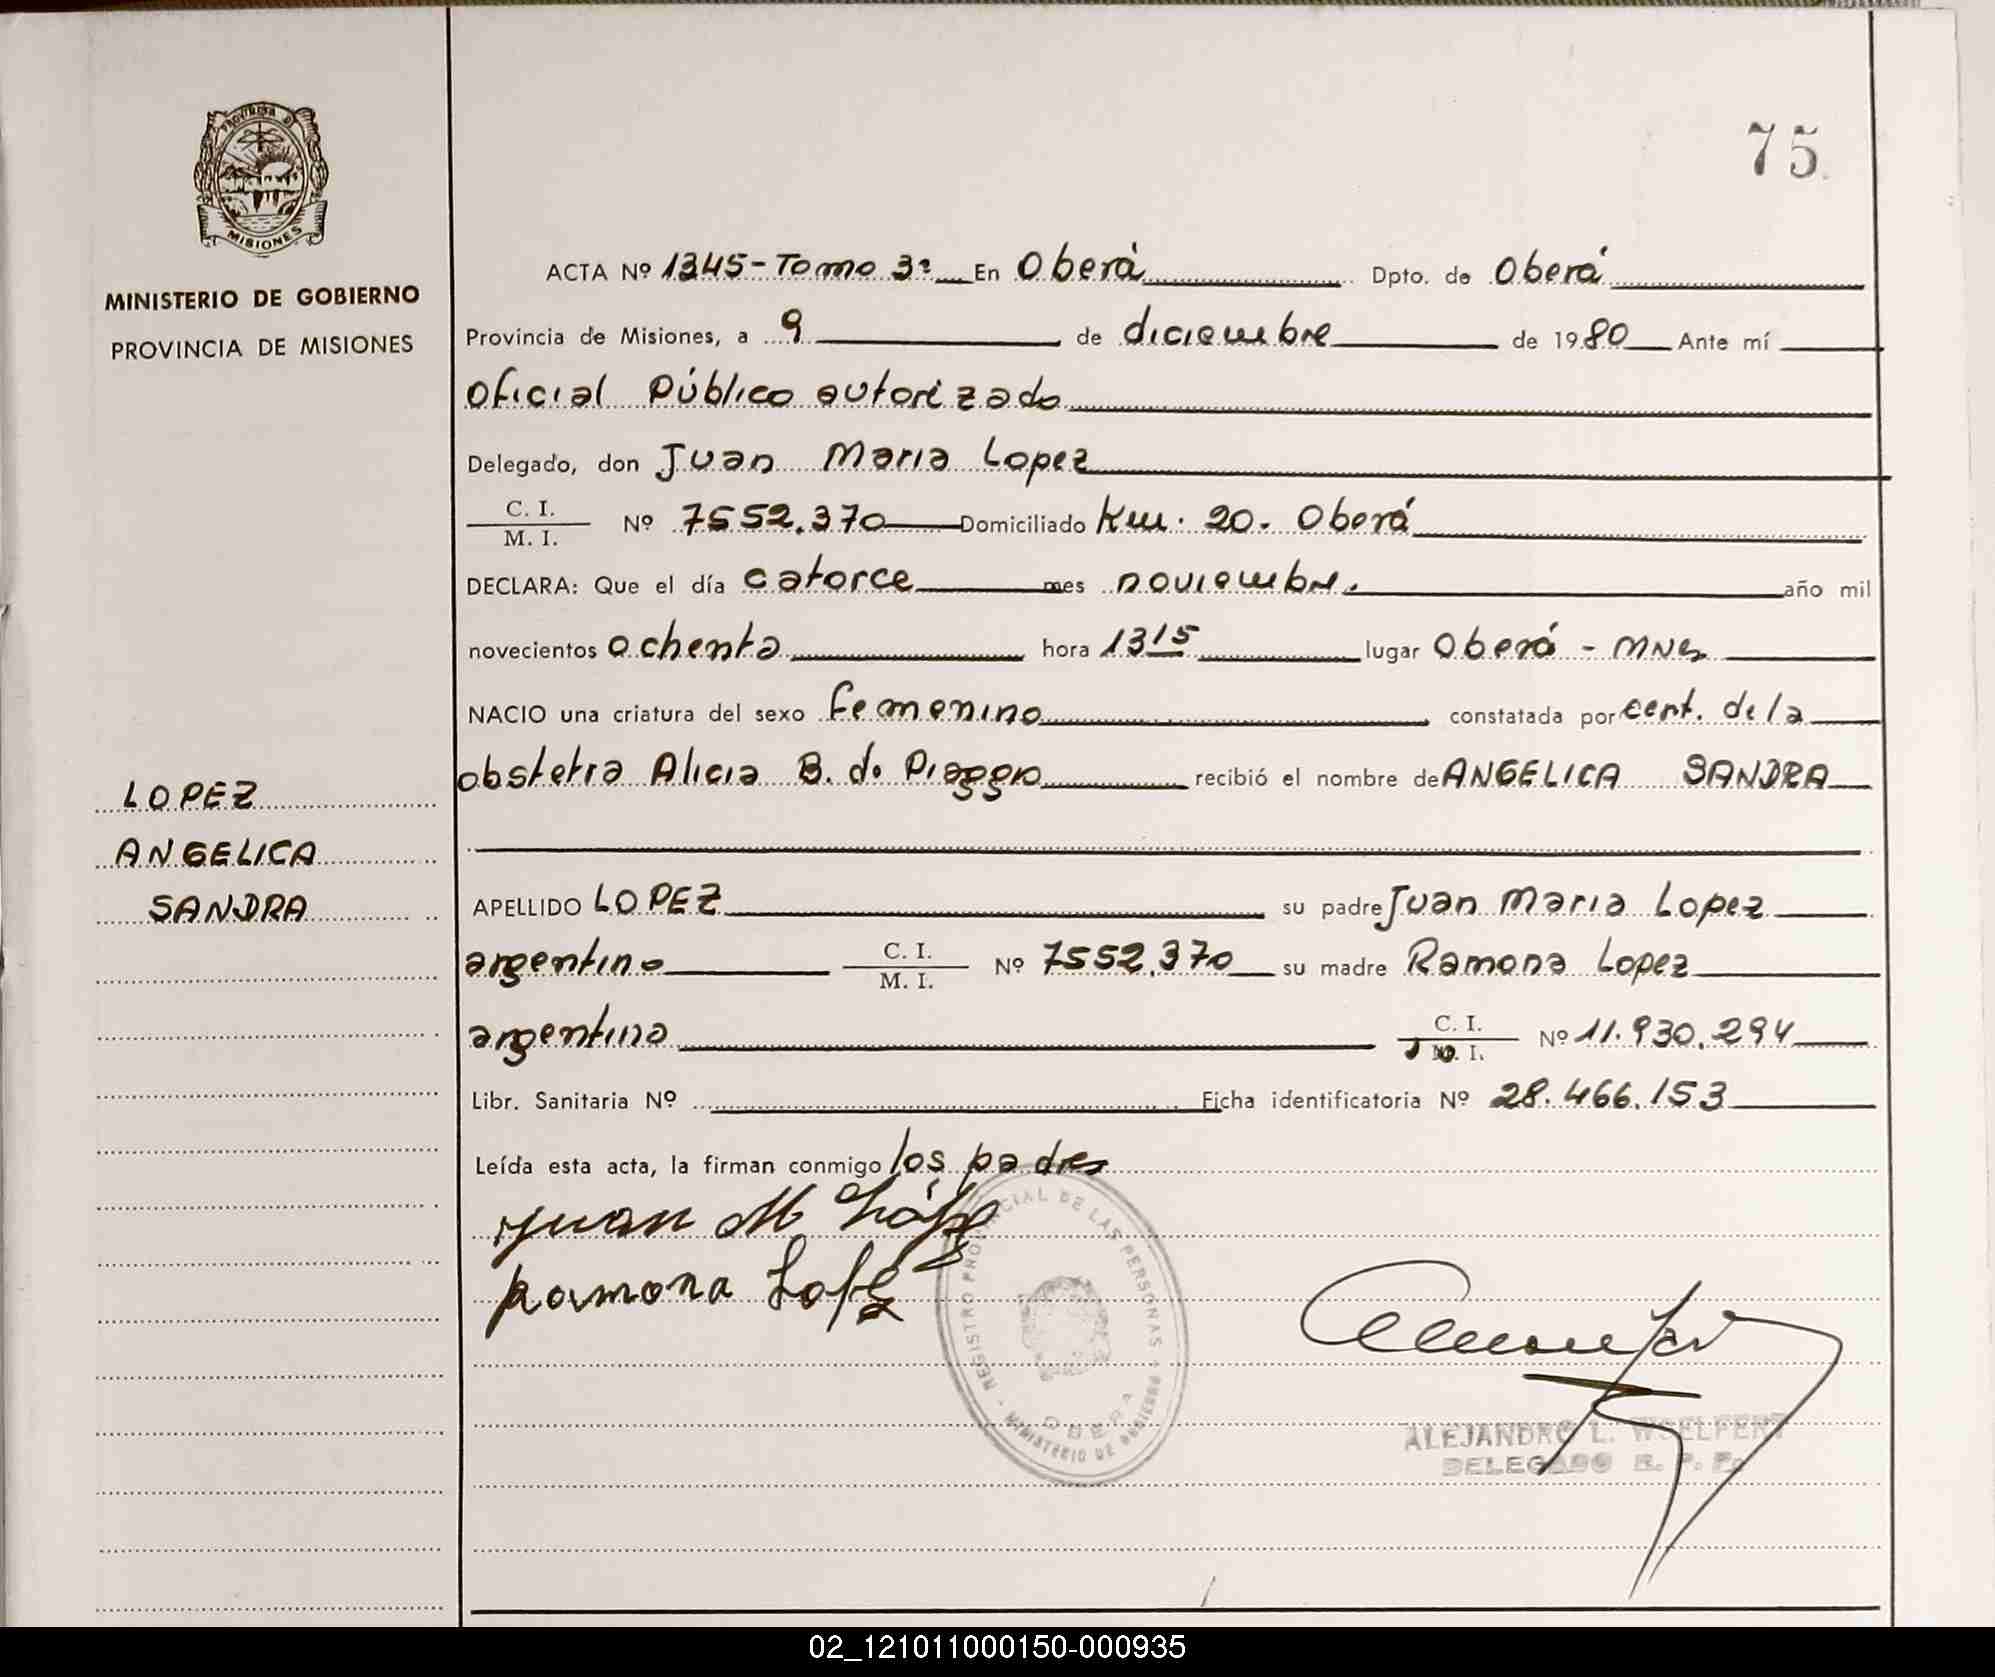 75
PROVINCIA DE
MISIONES
MINISTERIO DE GOBIERNO
PROVINCIA DE MISIONES
LOPEZ
ANGELICA
SANDRA
ACTA Nº 1345 - Tomo 3º En Oberá Dpto. de Oberá
Provincia de Misiones, a 9 de diciembre de 1980 Ante mí
Oficial Público autorizado
Delegado, don Juan Maria Lopez
C. I. / M. I. Nº 7552.370 Domiciliado Km. 20. Oberá
DECLARA: Que el día catorce mes noviembre. año mil
novecientos ochenta hora 13 15 lugar Oberá - Mnes
NACIO una criatura del sexo femenino constatada por cert. de la
obstetra Alicia B. de Piaggio recibió el nombre de ANGELICA SANDRA
APELLIDO LOPEZ su padre Juan Maria Lopez
argentino C. I. / M. I. Nº 7552.370 su madre Ramona Lopez
argentina C. I. / M. I. Nº 11.930.294
Libr. Sanitaria Nº Ficha identificatoria Nº 28.466.153
Leída esta acta, la firman conmigo los padres
Juan M López
Ramona Lopez
REGISTRO PROVINCIAL DE LAS PERSONAS
MINISTERIO DE GOBIERNO
OBERA
ALEJANDRO L.
DELEGADO R. P. P.
02_121011000150-000935